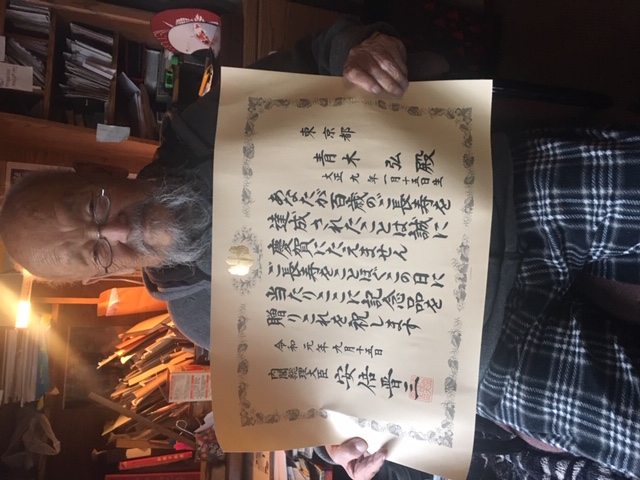 東京都
青木 弘 殿
大正九年一月十五日生
あなたが百歳のご長寿を
達成されたことは誠に
慶賀にたえません
ご長寿をことほぎこの日に
当たりここに記念品を
贈りこれを祝します
令和元年九月十五日
内閣総理大臣 安倍晋三